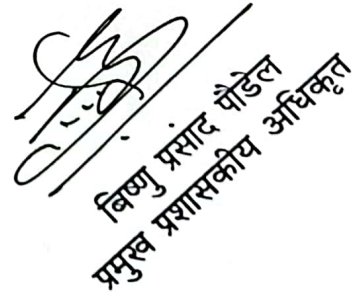 बिष्णु प्रसाद पौडेल
प्रमुख प्रशासकीय अधिकृत